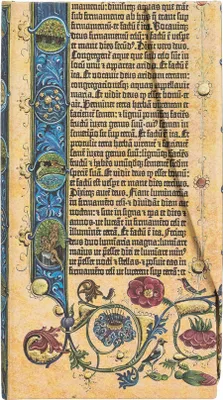 mamentū: divisitq; aquas que erāt
sub firmamento ab hijs q̄ erant sup
firmamentū: et factū ē ita. Vocavitq;
deus firmamentū celū: et factū ē vespe
et mane dies secūd⁹. Dixit vero deus.
Congregent̄ aque que sub celo sūt in
locū unū et appareat arida. Et factū ē
ita. Et vocavit deus aridam terram:
congregacionesq; aquarū appellavit
maria. Et vidit deus ꝙ esset bonū et
ait. Germinet terra herbā virentem et
facientem semen: et lignū pomiferū faciēs
fructū iuxta genus suū: cui⁹ semen in
semetipso sit sup terrā. Et factū ē ita. Et
protulit terra herbā virentem et faciētē
semē iuxta genus suū: lignūq; faciēs
fructū et habēs unūqdq; sementē scdm
speciē suā. Et vidit deus ꝙ esset bonū:
et factū est vespe et mane dies tercius.
Dixitq; autē deus. Fiant luminaria
in firmamēto celi · et dividāt diem ac
noctem: et sint in signa et tpa et dies et
annos: ut luceāt in firmamēto celi et
illuminēt terrā. Et factū ē ita. Fecitq;
deus duo luminaria magna: luminare
maius ut pesset diei et luminare minus
ut pesset nocti et stellas et posuit eas in
firmamēto celi ut lucerent sup terrā: et